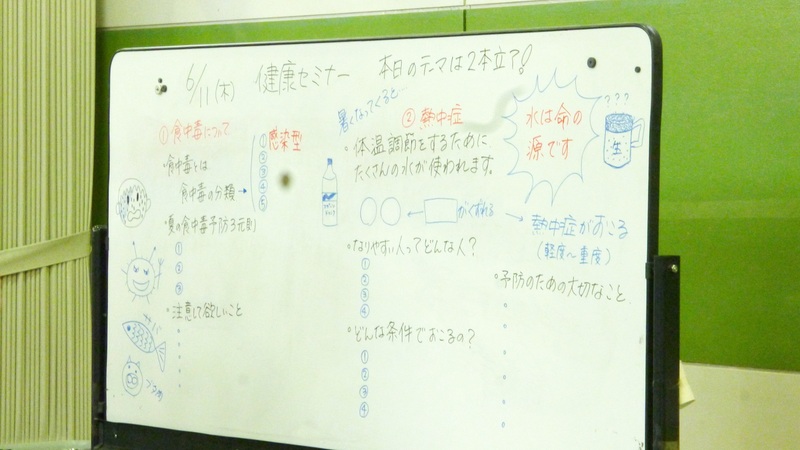 6/11(木) 健康セミナー 本日のテーマは2本立ア!
① 食中毒について
・食中毒とは
食中毒の分類 →
感染型
①
②
③
④
⑤
・夏の食中毒予防3元則
①
②
③
・注意して欲しいこと
サバ
暑くなってくると
② 熱中症
・体温調節をするために、
たくさんの水が使われます。
がくずれる
→ 熱中症がおこる
(軽度〜重度)
・なりやすい人ってどんな人?
①
②
③
④
・どんな条件でおこるの?
①
②
③
④
水は命の
源です
???
生
・予防のための大切なこと